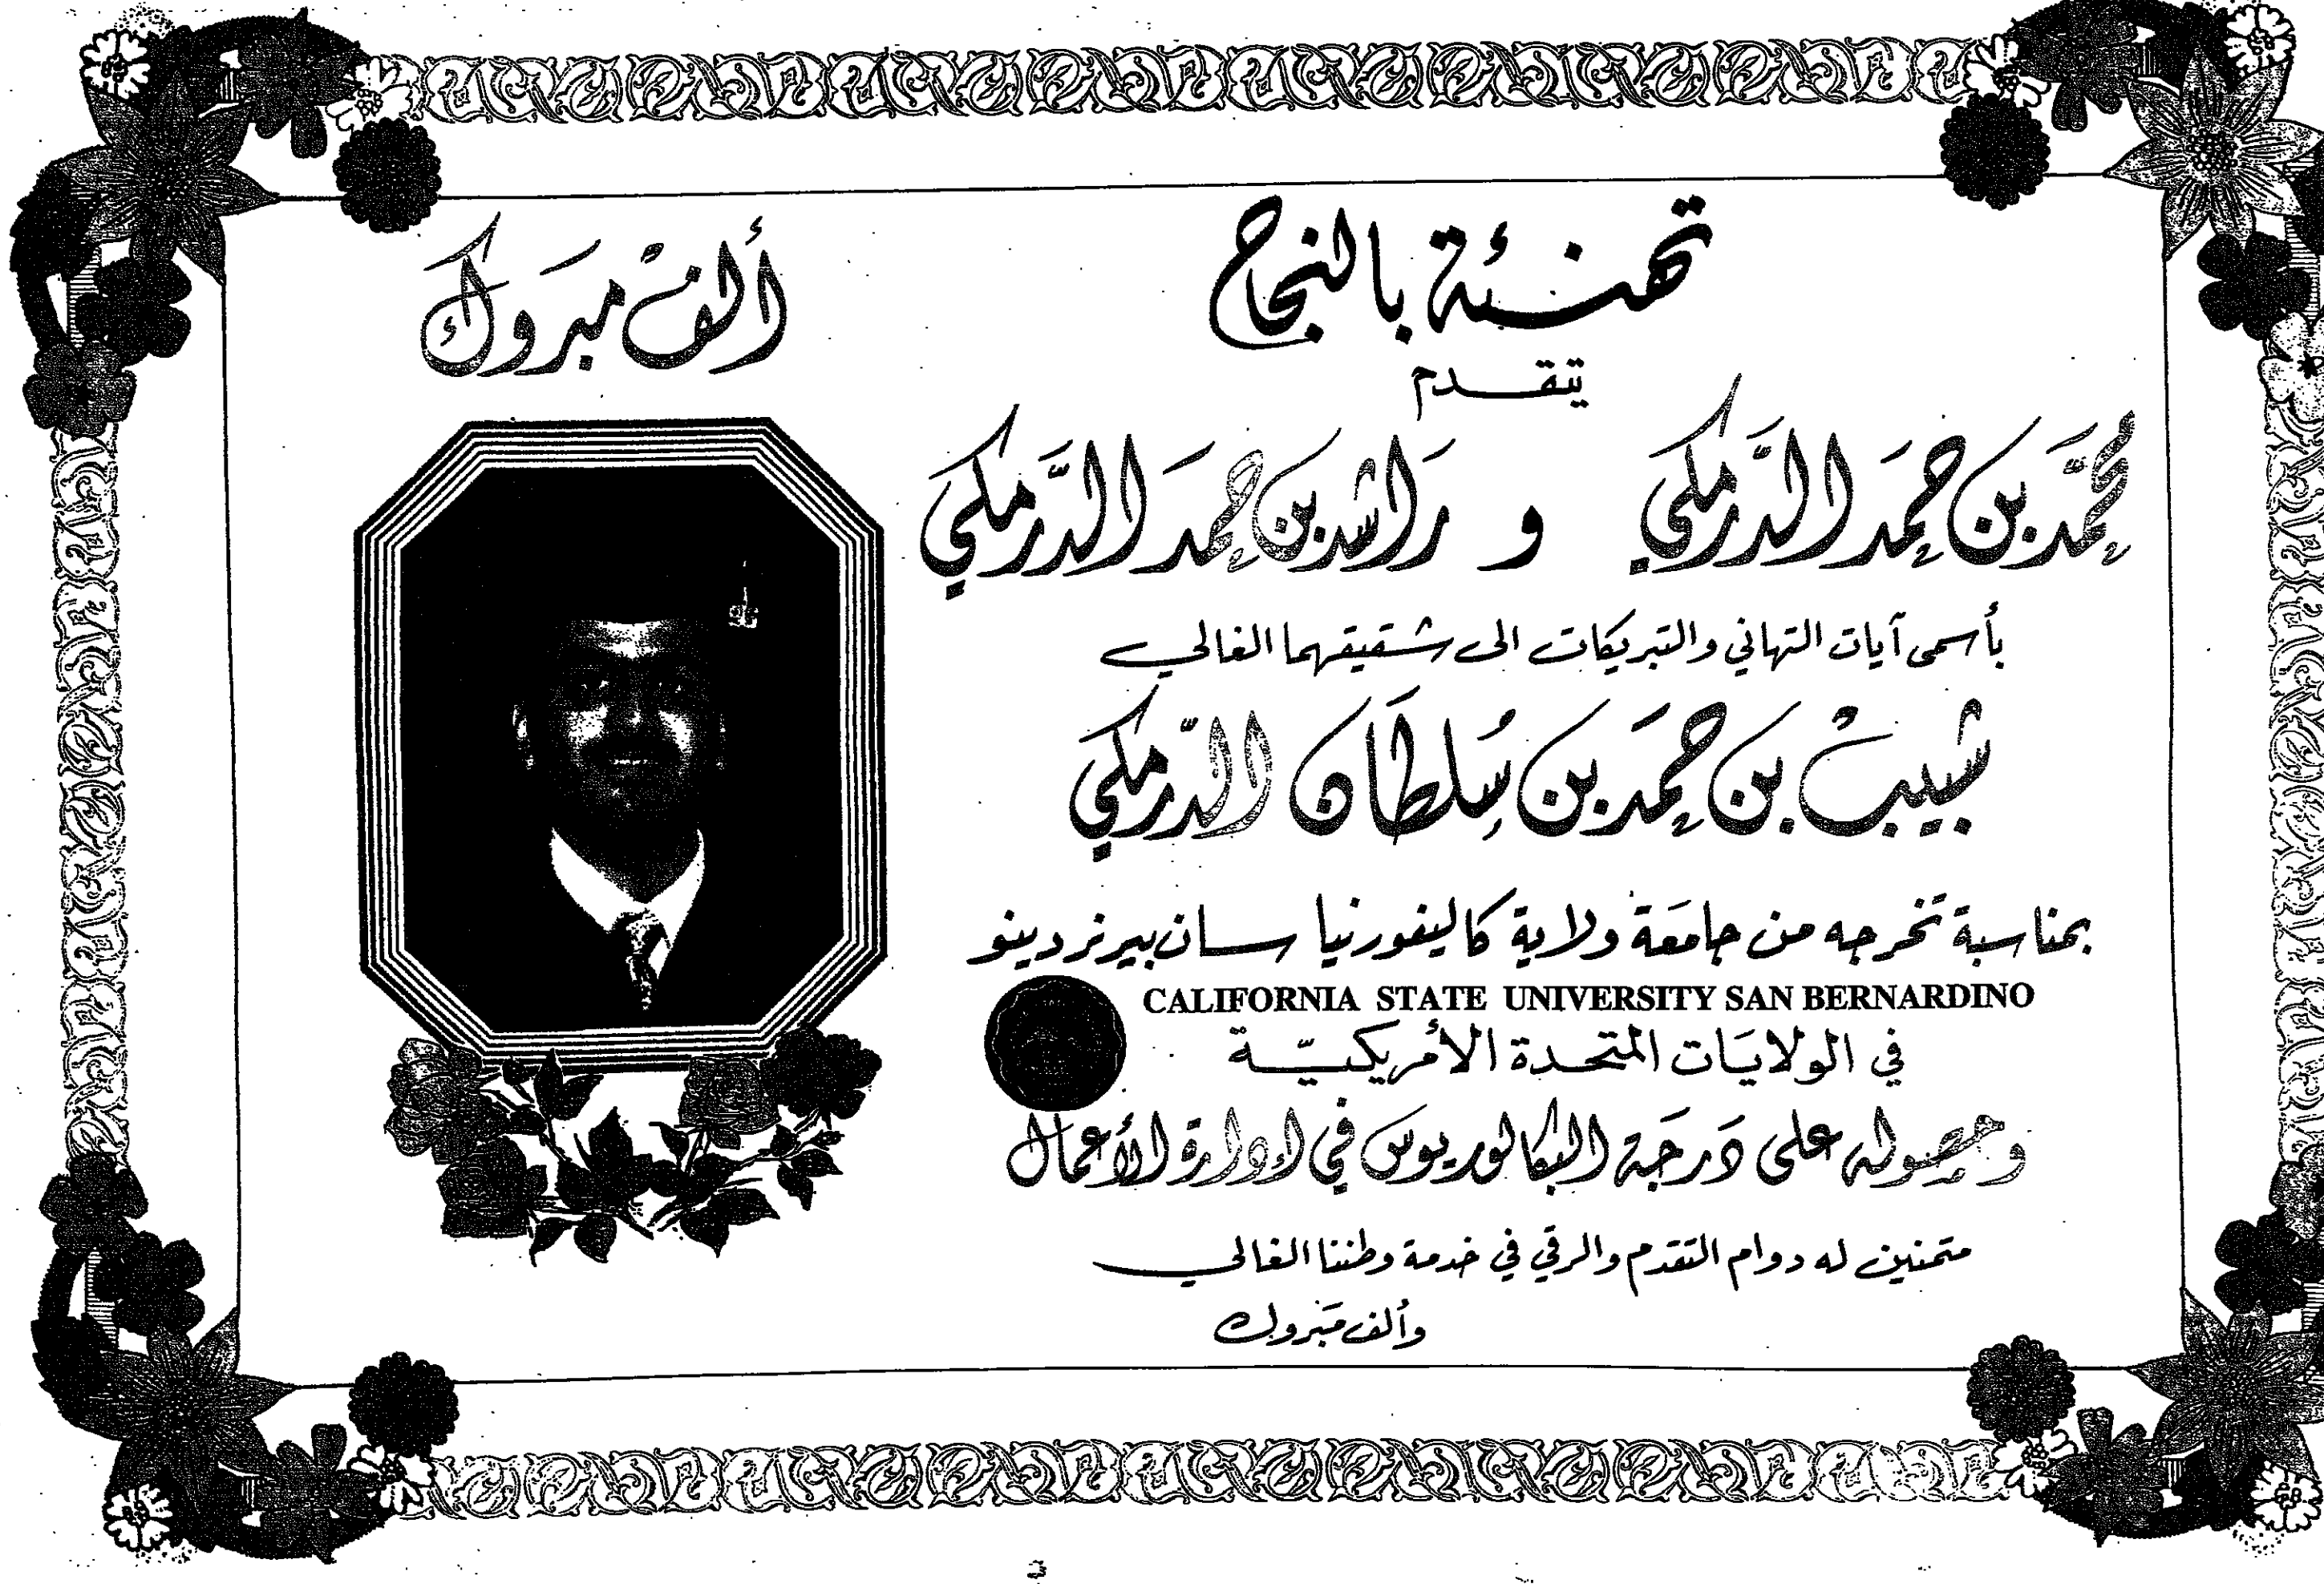 تهنئة بالنجاح
ألف مبروك
يتقدم
محمّد بن حمد الدّرمكي و راشد بن حمد الدّرمكي
بأسمى آيات التهاني والتبريكات الى شقيقهما الغالي
شبيبْ بن حمَد بن سُلطان الدّرمكي
بمناسبة تخرجه من جامعَة ولاية كاليفورنيا سان بيرنردينو
CALIFORNIA STATE UNIVERSITY SAN BERNARDINO
في الولايَات المتحدة الأمريكيّة
وحصوله على دَرجَة البكالوريوس في إدارة الأعمال
متمنين له دوام التقدم والرقي في خدمة وطننا الغالي
وألف مَبروك